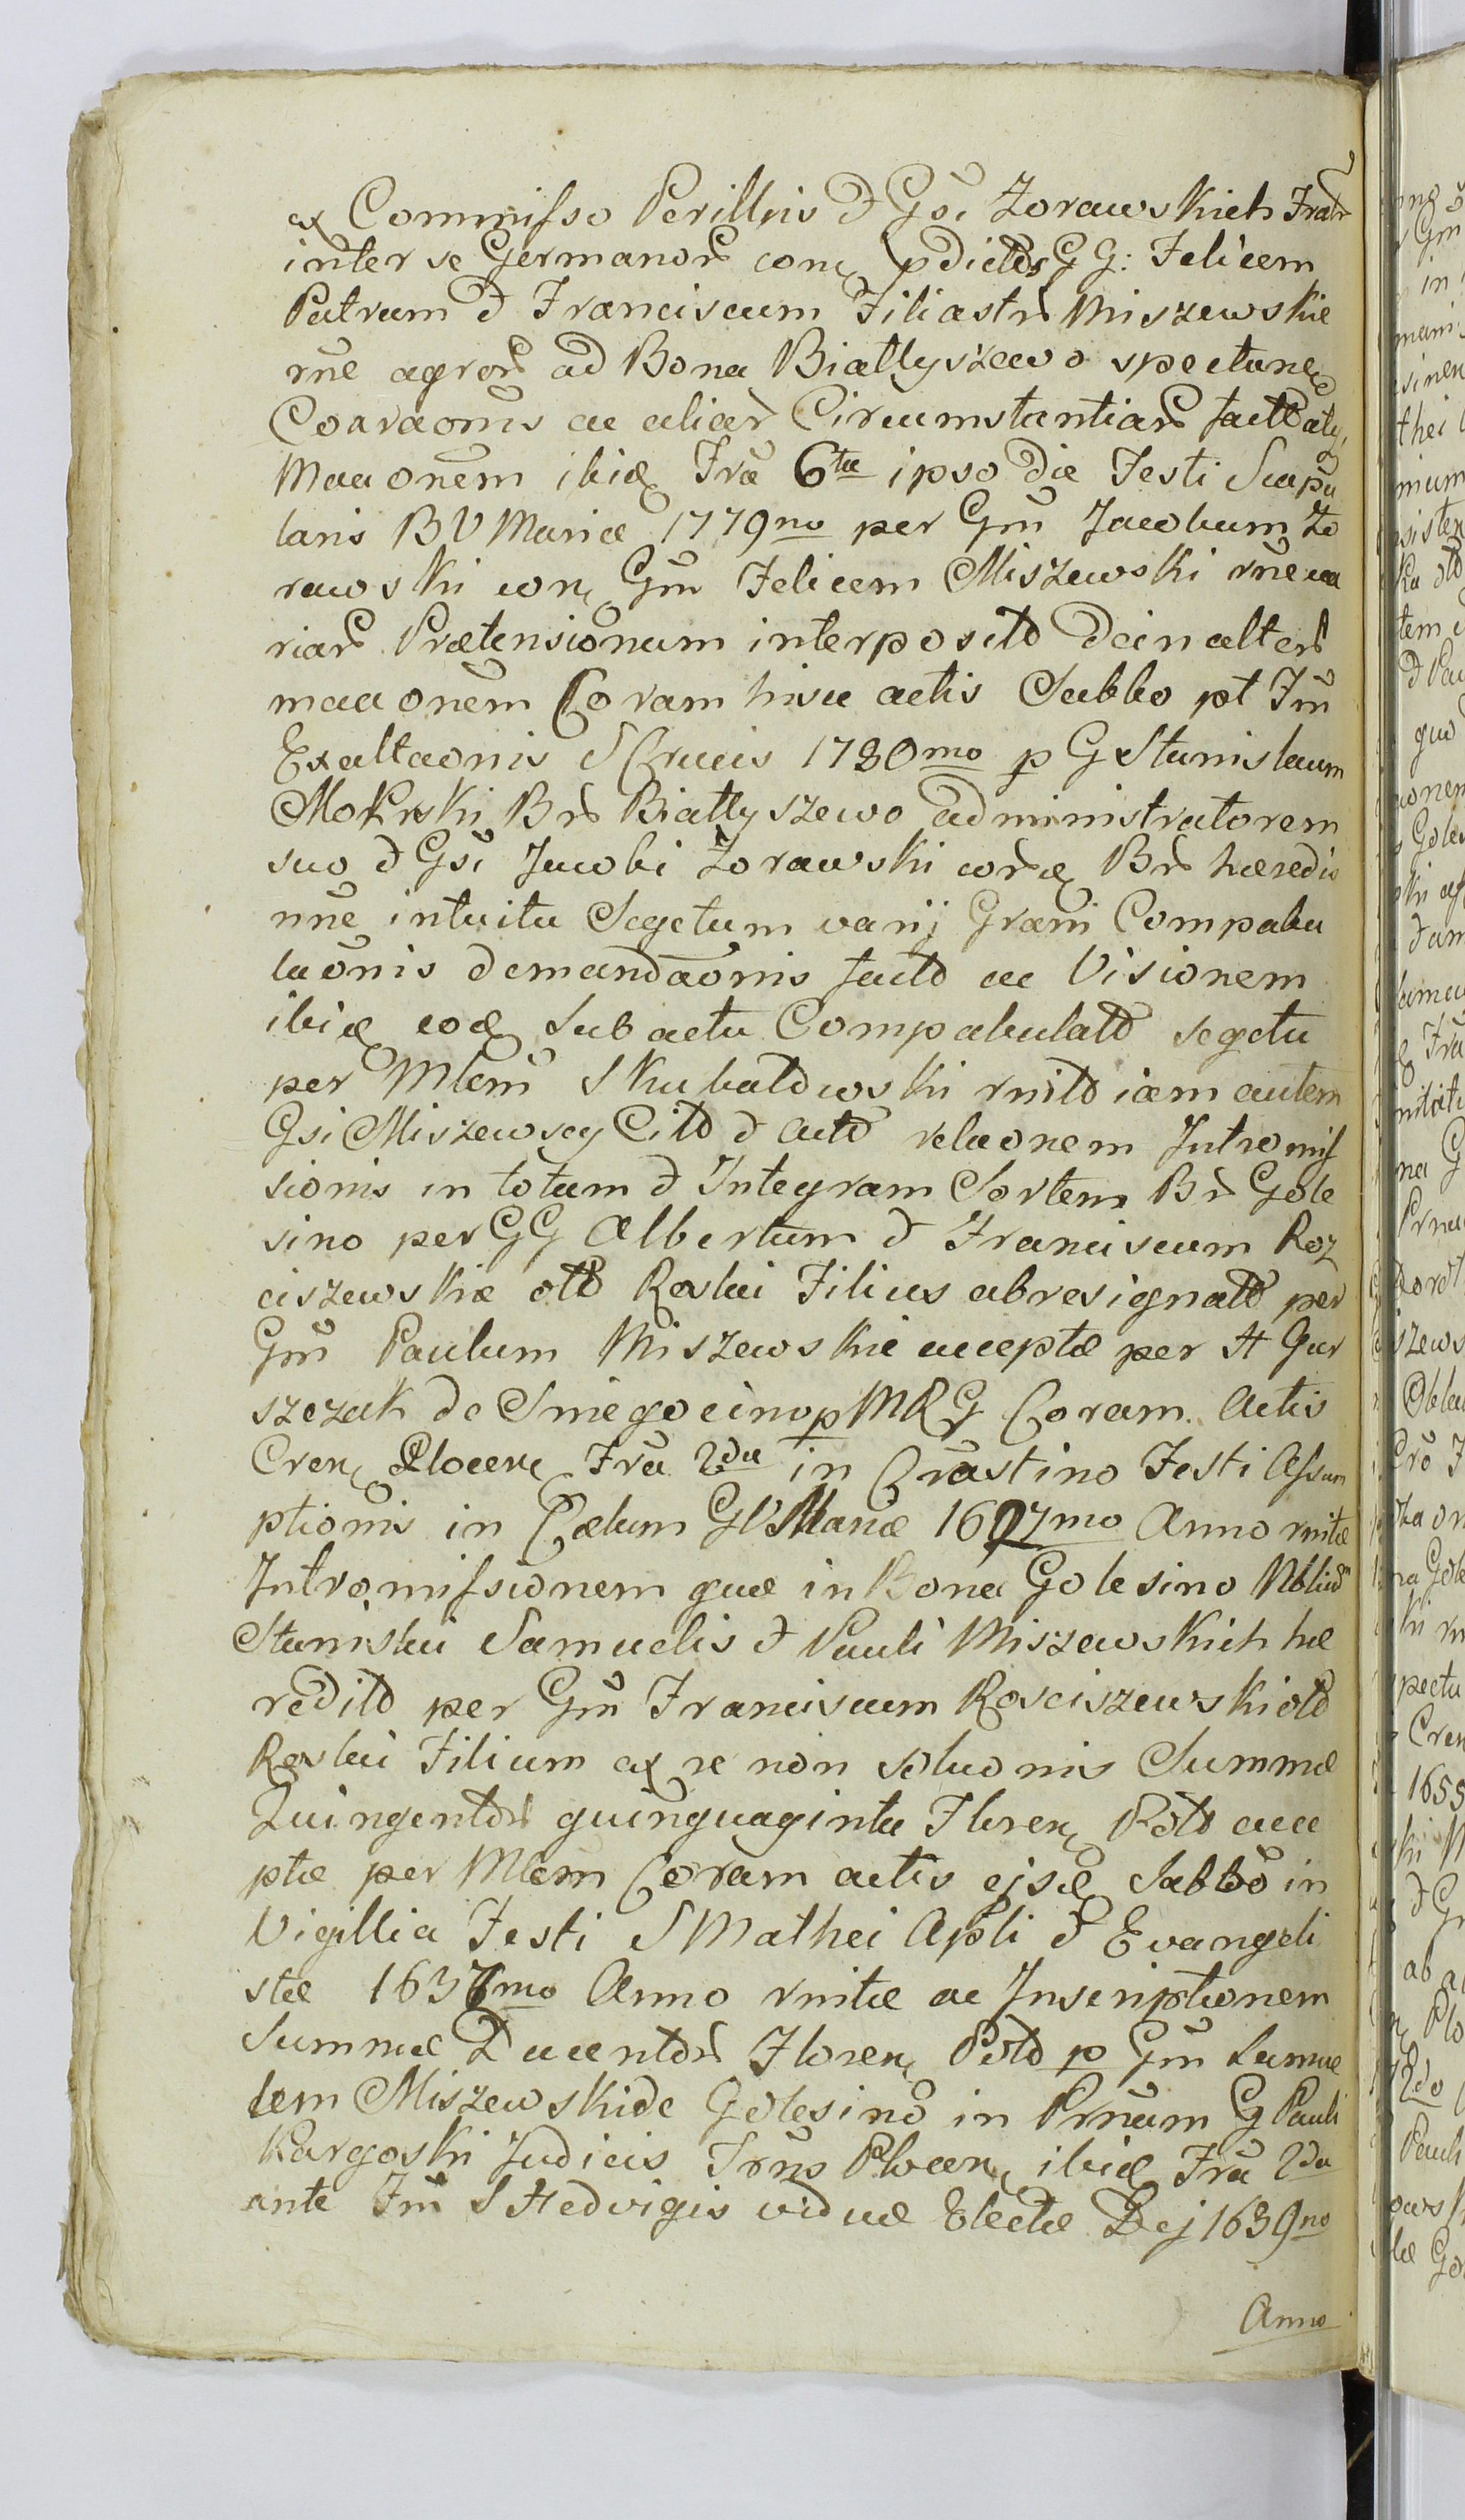 ex Commisso Perillris & Gsi Zorawskich Fratr
inter se Germanor con pdictos GG: Felicem
Patrum & Franciscum Filiastr Miszewskie
rne agror ad Bona Białłyszewo spectan
Coaraonis ac aliar Circumstantiar fact alt,
Maaonem ibid Fra 6ta ipso die Festi Scapu
laris BVMariæ 1779no per Gm Jacobum Zo
rawski con Gm Felicem Miszewski rne va
riar Prætensionum interposit Dein alter
maaonem Coram hisce actis Sabbo pt Fm
Exaltaonis S Crucis 1780mo p G Stanislaum
Mokrski Br Białłyszewo administratorem
suo & Gsi Jacobi Zorawski eor Br hæredis
nne intuitu Segetum varij Grani Compabu
laonis demandaonis fact ac Visionem
ibid eod sub actu Compabulat segetu
per Mlem Skubatowski rnit iam autem
Gsi Miszewscy Cit & act relaonem Intromis
sionis in totam & Integram Sortem Br Gole
sino per GG Albertum & Franciscum Roz
ciszewskie ol Roslai Filius abresignat per
Gm Paulum Miszewskie acceptæ per H Gur
szczak de Smiegocino p MRG Coram Actis
Cren Plocen Fra 2da in Crastino Festi Assum
ptionis in Cælum GVMariæ 1607mo Anno rnitæ
Intromissionem quæ in Bona Golesino Nblium
Stanislai Samuelis & Pauli Miszewskich hæ
redit per Gm Franciscum Rosciszewski ol
Roslai Filium ex re non soluonis Summæ
Quingentor quinquaginta Floren Pol acce
ptæ per Mlem Coram actis ejsd Sabbo in
Vigillia Festi S Mathei Apli & Evangeli
stæ 1637mo Anno rnitæ ac Inscriptionem
Summæ Ducentor Floren Pol p Gm Samue
lem Miszewski de Golesino in Prnam G Pauli
Kargoski Judicis Trris Plocen ibid Fra 2da
ante Fm S Hedvigis viduæ Electæ Dej 1639no
Anno